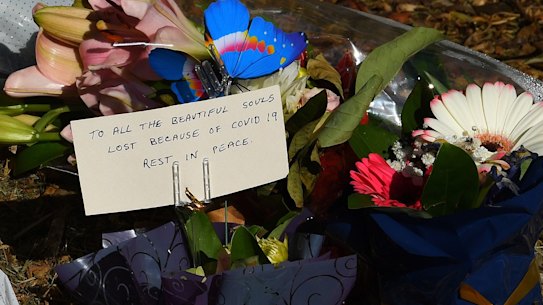 TO ALL THE BEAUTIFUL SOULS
LOST BECAUSE OF COVID 19
REST IN PEACE.